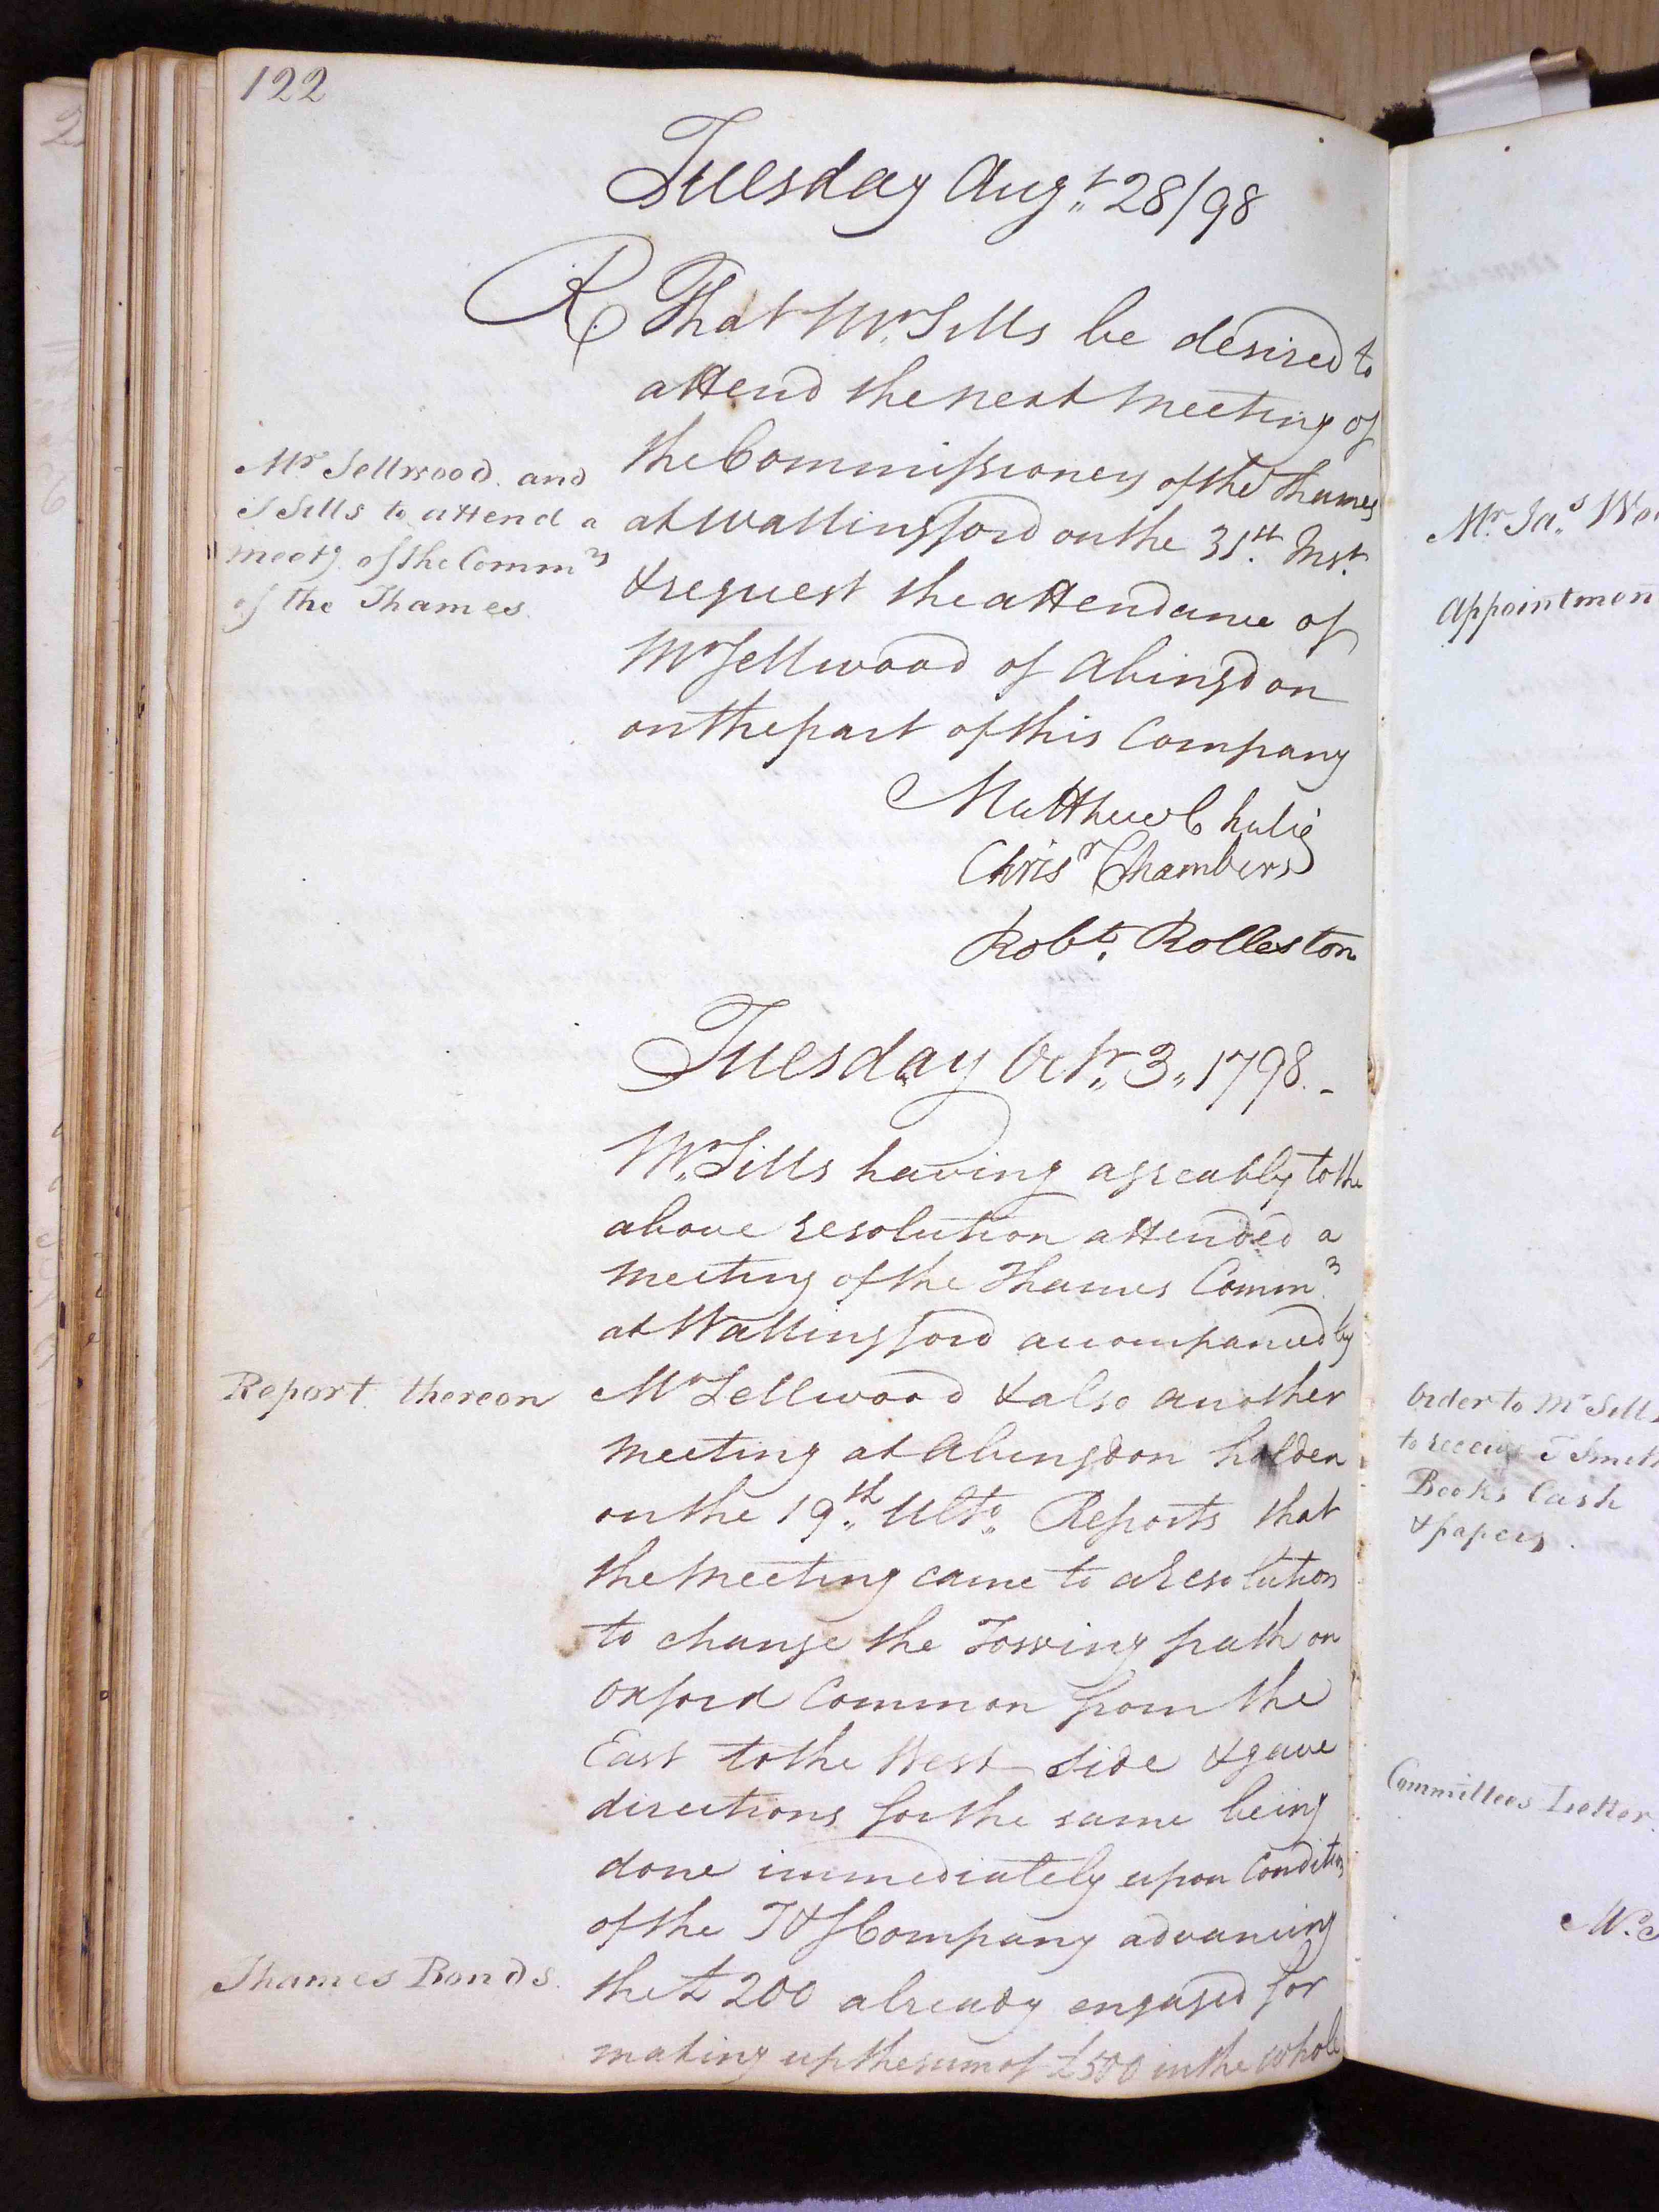 122
Tuesday Augt. 28/98
R. That Mr. Sills be desired to
attend the next Meeting of
the Commissioners of the Thames
at Wallingford on the 31st. Inst.
& request the attendance of
Mr Sellwood of Abingdon
on the part of this Company
Mr. Sellwood and
J Sills to attend a
meetg. of the Commrs
of the Thames
Matthew Chalie
Chrisr Chambers
Robt. Rolleston
Tuesday Octr. 3, 1798.-
Mr. Sills having agreeably to the
above resolution attended a
Meeting of the Thames Commrs.
at Wallingford accompanied by
Report thereon
Mr Sellwood & also another
Meeting at Abingdon holden
on the 19th. Ulto. Reports that
the Meeting came to a Resolution
to change the Towing path on
Oxford Common from the
East to the West side & gave
directions for the same being
done immediately upon Condition
of the T & S Company advancing
Thames Bonds.
the £200 already engaged for
making up the sum of £500 in the whole
Mr. Jas.
Order to Mr Sills
to receive T Smith
Books Cash
& papers.
Committees Letter